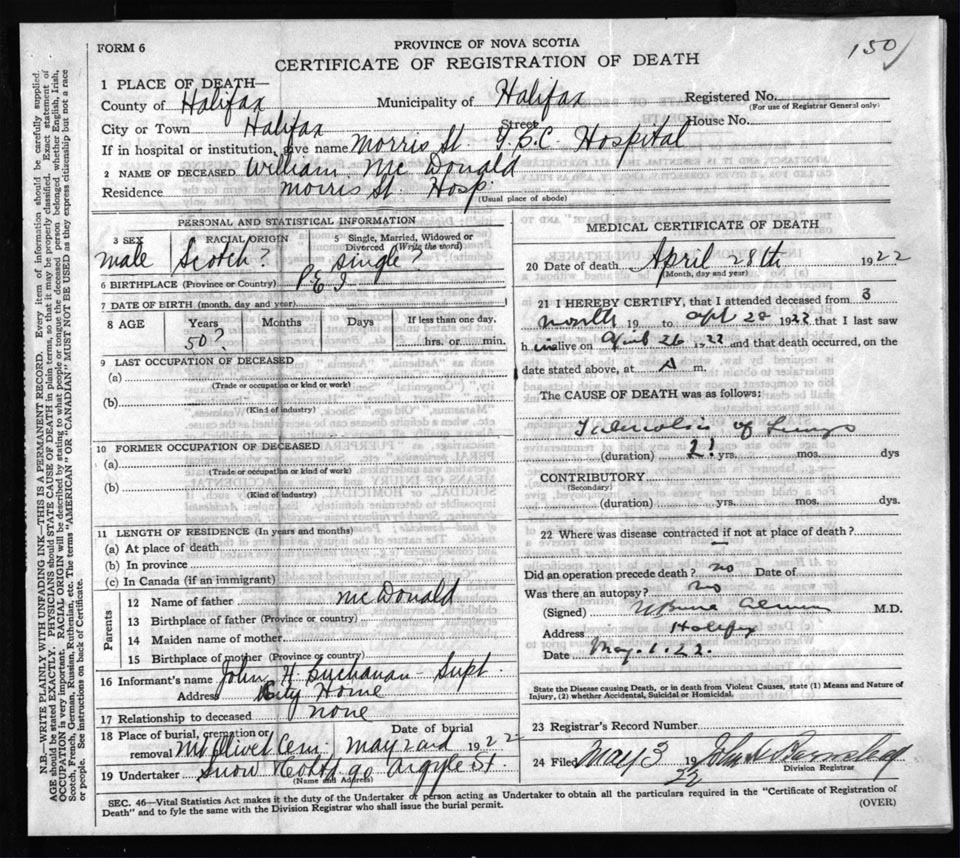 FORM 6
150
PROVINCE OF NOVA SCOTIA
CERTIFICATE OF REGISTRATION OF DEATH
1 PLACE OF DEATH—
County of Halifax Municipality of Halifax Registered No.
(For use of Registrar General only)
City or Town Halifax Street House No.
If in hospital or institution, give name Morris St. T.B.C. Hospital
2 NAME OF DECEASED William Mc Donald
Residence Morris St. Hosp.
(Usual place of abode)
PERSONAL AND STATISTICAL INFORMATION
3 SEX RACIAL ORIGIN 5 Single, Married, Widowed or Divorced (Write the word)
male Scotch? single?
6 BIRTHPLACE (Province or Country) P.E.I
7 DATE OF BIRTH (month, day and year)
8 AGE Years Months Days If less than one day,
50? hrs. or min.
9 LAST OCCUPATION OF DECEASED
(a)
(Trade or occupation or kind or work)
(b)
(Kind of industry)
10 FORMER OCCUPATION OF DECEASED
(a)
(Trade or occupation or kind of work)
(b)
(Kind of industry)
11 LENGTH OF RESIDENCE (In years and months)
(a) At place of death
(b) In province
(c) In Canada (if an immigrant)
Parents
12 Name of father McDonald
13 Birthplace of father (Province or country)
14 Maiden name of mother
15 Birthplace of mother (Province or country)
16 Informant's name John H. Buchanan Supt.
Address City Home
17 Relationship to deceased none
18 Place of burial, cremation or Date of burial
removal Mt Olivet Cem. May 2nd 1922
19 Undertaker Snow & Co Ltd 90 Argyle St.
(Name and Address)
MEDICAL CERTIFICATE OF DEATH
20 Date of death April 28th 1922
(Month, day and year)
21 I HEREBY CERTIFY, that I attended deceased from 3
month 19 to Apl 28 1922 that I last saw
h im alive on April 26 1922 and that death occurred, on the
date stated above, at A m.
The CAUSE OF DEATH was as follows:
of Lungs
(duration) 2! yrs. mos. dys
CONTRIBUTORY
(Secondary)
(duration) yrs. mos. dys.
22 Where was disease contracted if not at place of death?
Did an operation precede death? no Date of
Was there an autopsy? No
(Signed) M.D.
Address Halifax
Date May. 1. 22.
State the Disease causing Death, or in death from Violent Causes, state (1) Means and Nature of
Injury, (2) whether Accidental, Suicidal or Homicidal.
23 Registrar's Record Number
24 Filed May 3 1922 John
Division Registrar
SEC. 46—Vital Statistics Act makes it the duty of the Undertaker or person acting as Undertaker to obtain all the particulars required in the "Certificate of Registration of
Death" and to fyle the same with the Division Registrar who shall issue the burial permit.
(OVER)
N.B.—WRITE PLAINLY WITH UNFADING INK—THIS IS A PERMANENT RECORD. Every item of information should be carefully supplied.
AGE should be stated EXACTLY. PHYSICIANS should STATE CAUSE OF DEATH in plain terms, so that it may be properly classified. Exact statement of
OCCUPATION is very important. RACIAL ORIGIN will be described by stating to what people or tongue the deceased person belonged whether English, Irish,
Scotch, French, German, Russian, Ruthenian, etc. The terms "AMERICAN" OR "CANADIAN" MUST NOT BE USED as they express citizenship but not a race
or people. See instructions on back of Certificate.